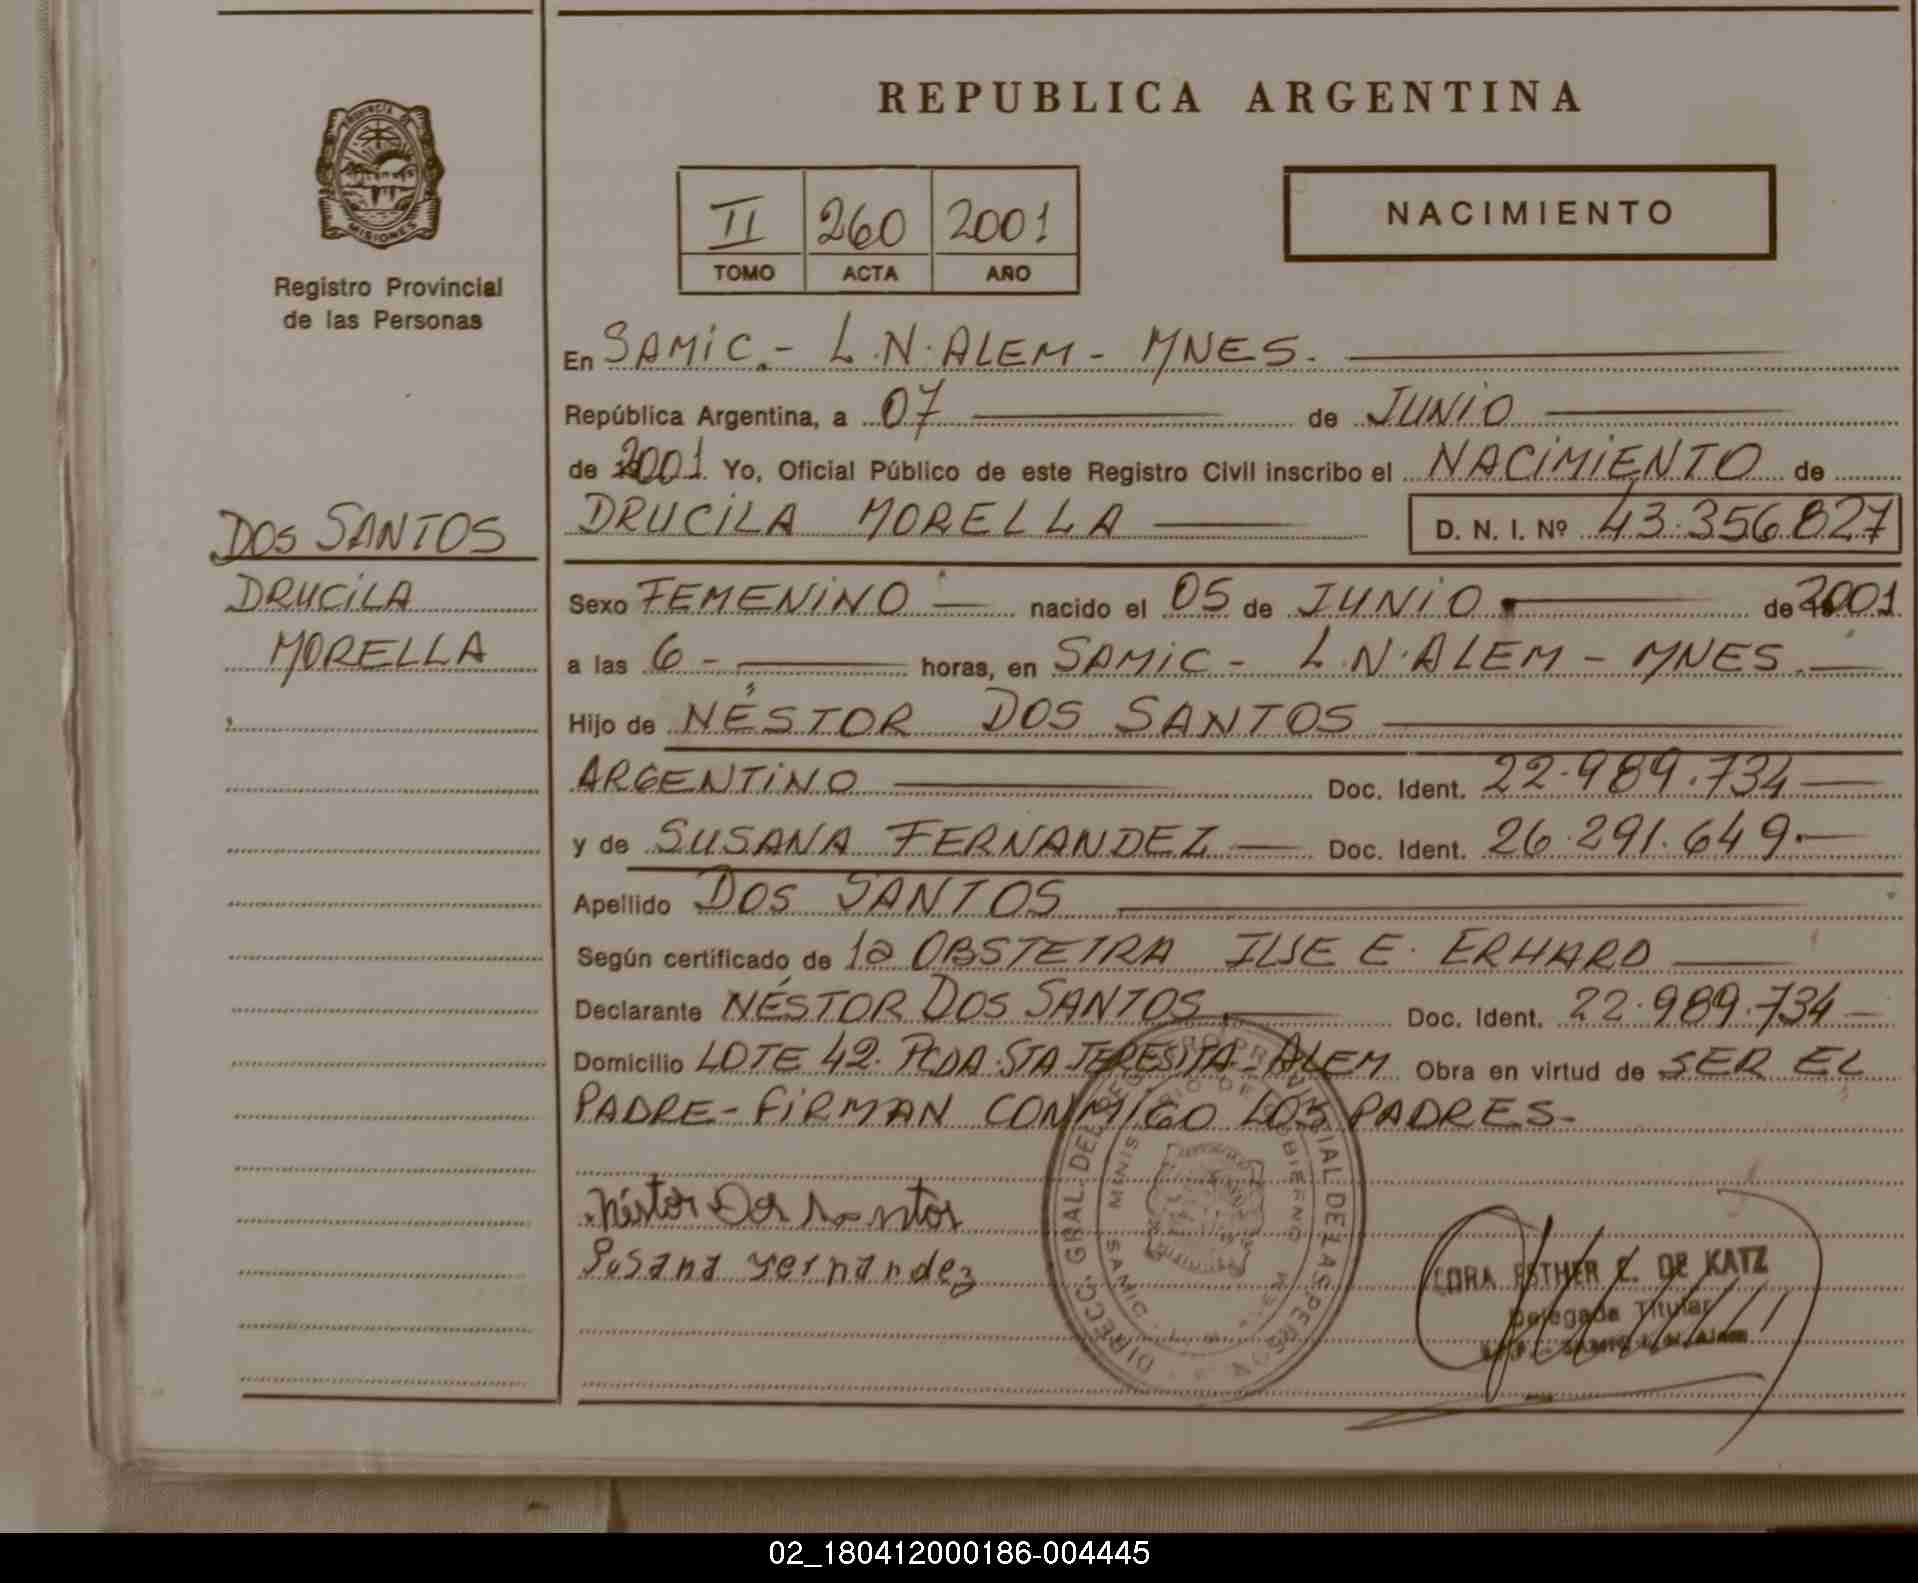 REPUBLICA ARGENTINA
PROVINCIA DE
MISIONES
Registro Provincial
de las Personas
II 260 2001
TOMO ACTA AÑO
NACIMIENTO
En SAMIC.- L.N.ALEM- MNES.
República Argentina, a 07 de JUNIO
de 2001. Yo, Oficial Público de este Registro Civil inscribo el NACIMIENTO de
DRUCILA MORELLA D. N. I. Nº 43.356.827
DOS SANTOS
DRUCILA
MORELLA
Sexo FEMENINO nacido el 05 de JUNIO de 2001
a las 6 - horas, en SAMIC- L.N.ALEM - MNES.
Hijo de NÉSTOR DOS SANTOS
ARGENTINO Doc. Ident. 22.989.734
y de SUSANA FERNANDEZ Doc. Ident. 26.291.649.
Apellido DOS SANTOS
Según certificado de la OBSTETRA ILSE E. ERHARD
Declarante NÉSTOR DOS SANTOS Doc. Ident. 22.989.734
Domicilio LOTE 42. PCDA.STA TERESITA-ALEM Obra en virtud de SER EL
PADRE-FIRMAN CONMIGO LOS PADRES-
Néstor Dos Santos
Susana Fernandez
DIRECC. GRAL. DEL REGISTRO PROVINCIAL DE LAS PERSONAS
MINISTERIO DE GOBIERNO
SAMIC
ESTHER E. DE KATZ
Delegada Titular
02_180412000186-004445